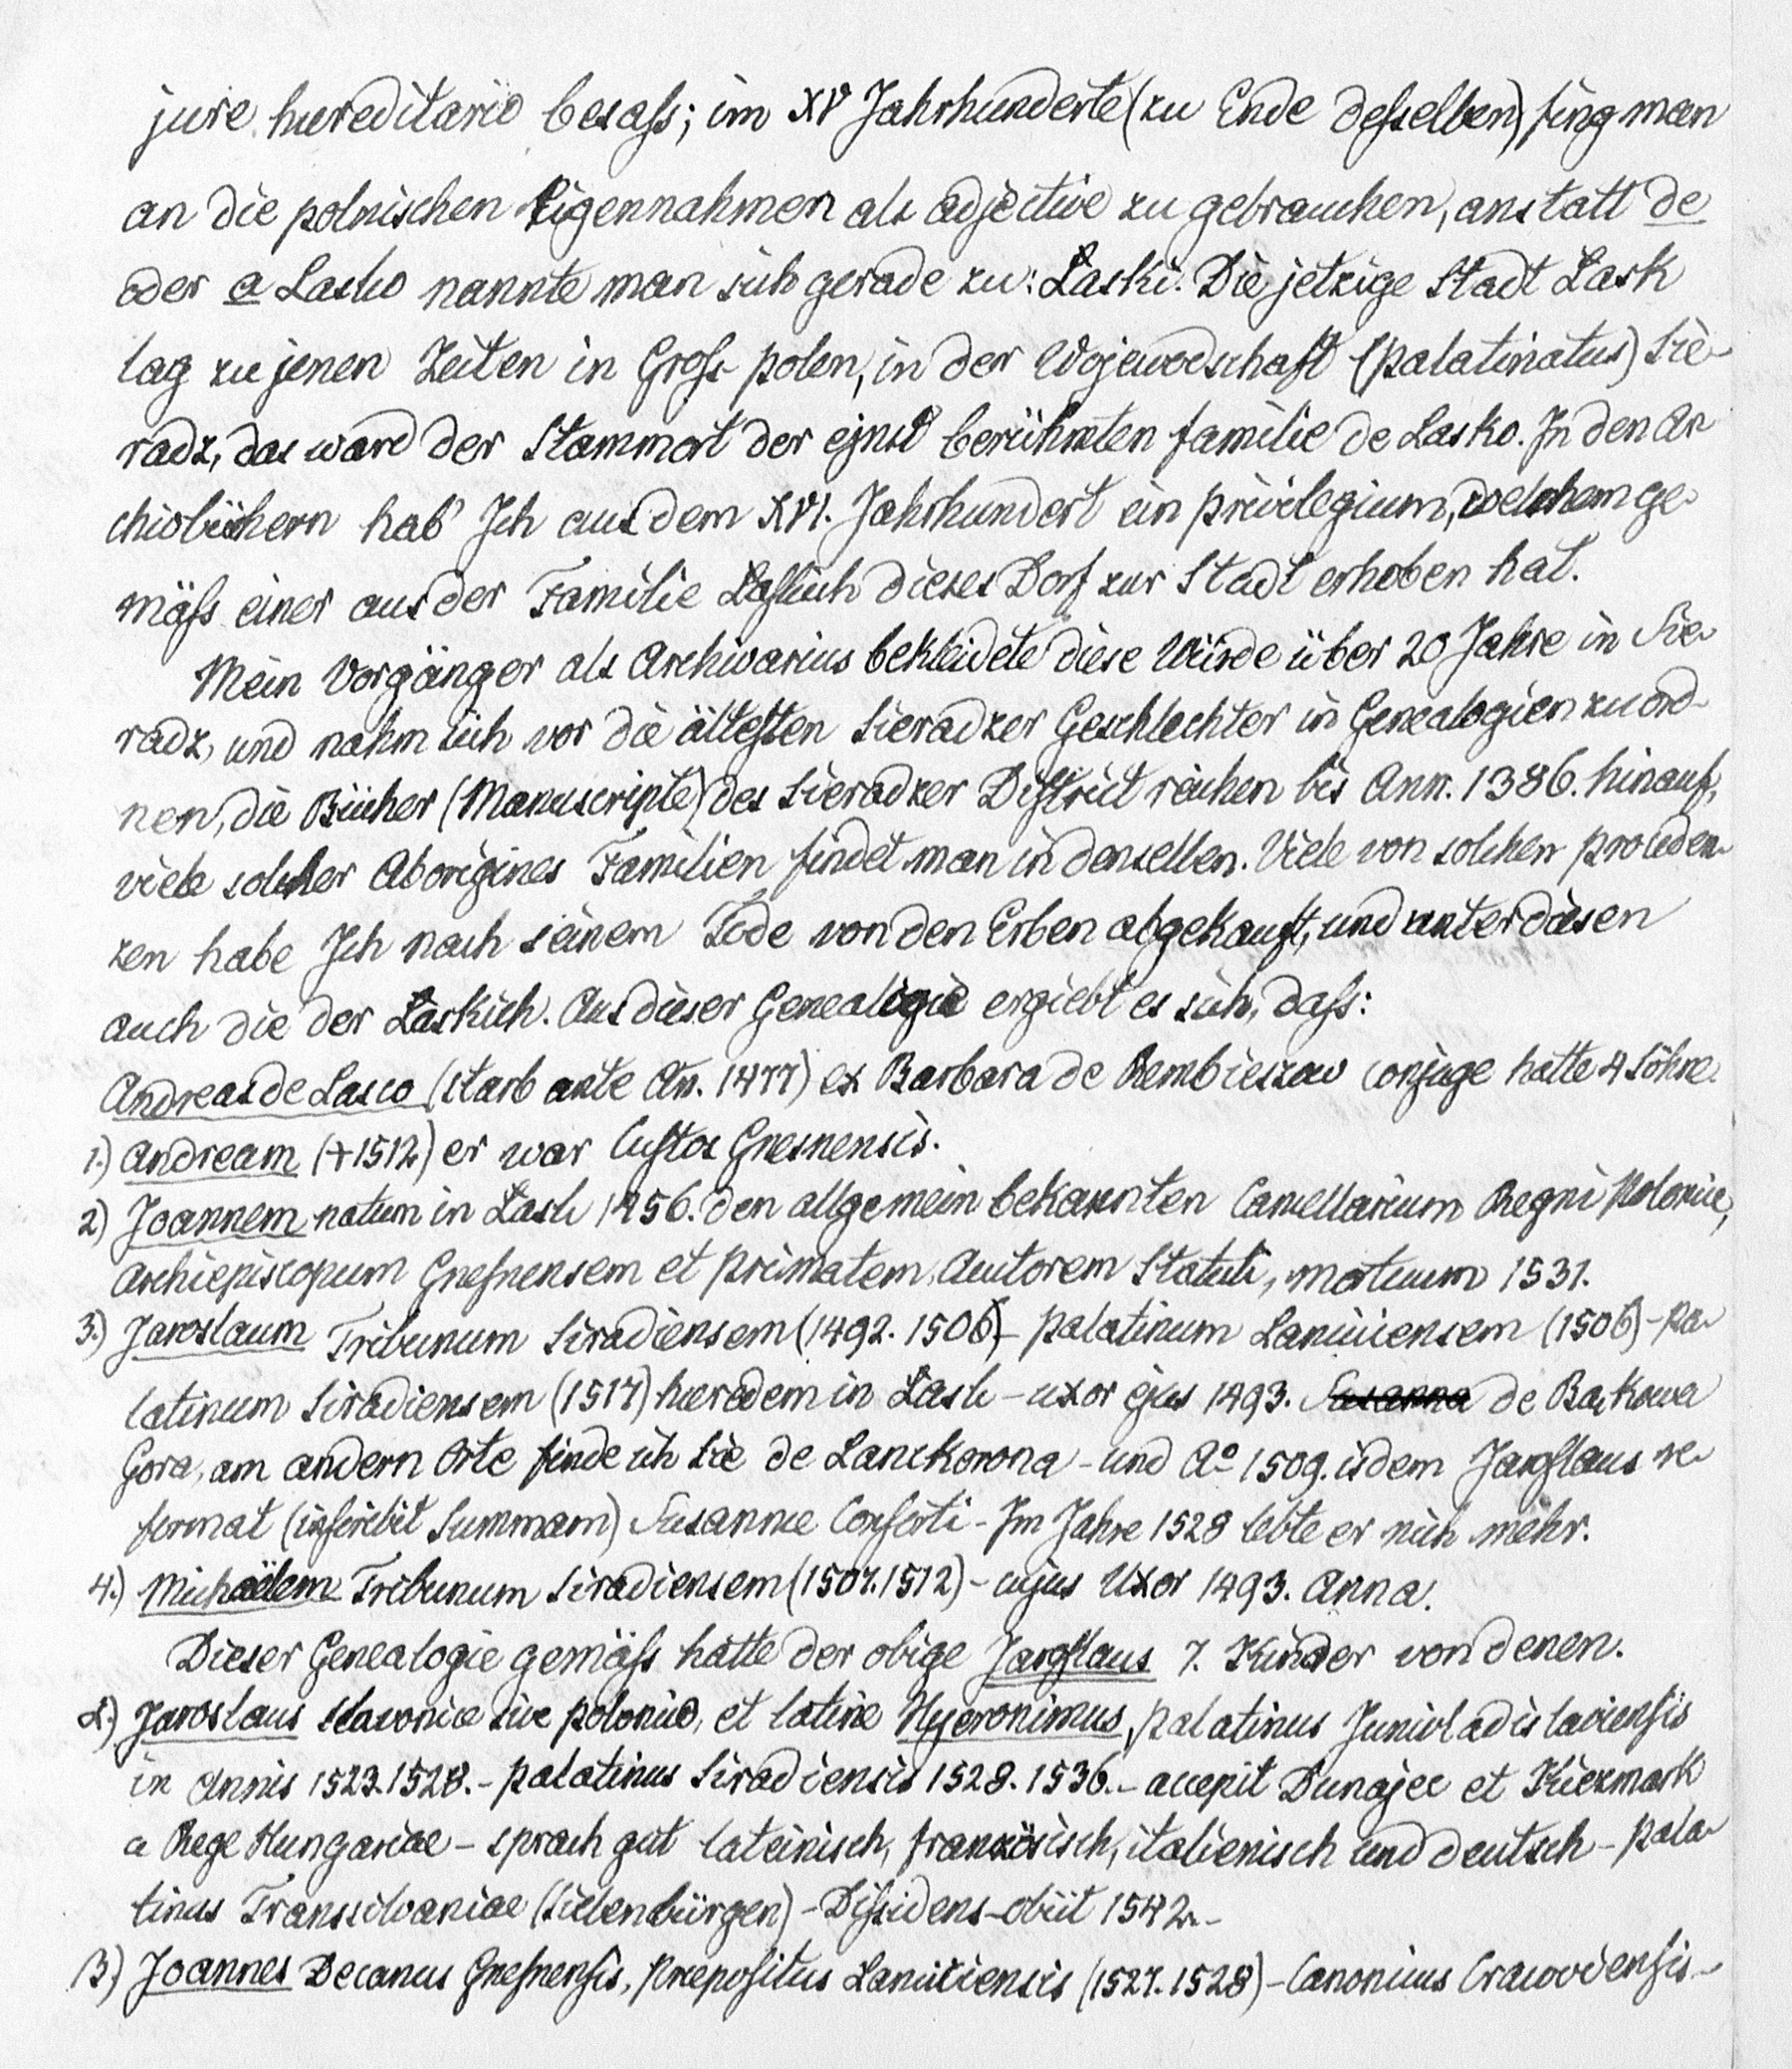 jure haereditario besaß; im XV Jahrhunderte (zu Ende desselben) fing man
an die polnischen Eigennahmen als adjective zu gebrauchen, anstatt de
oder a Lasko nannte man sich gerade zu: Laski. Die jetzige Stadt Lask
lag zu jenen Zeiten in Groß-polen, in der Wojewodschaft (palatinatus) Sie-
radz, das ward der Stammort der einst berühmten familie de Lasko. In den Ar
chivbüchern hab' Ich aus dem XVI. Jahrhundert ein privilegium, welchem ge-
mäß einer aus der Familie Laskich dieses Dorf zur Stadt erhoben hat.
Mein Vorgänger als Archivarius bekleidete diese Würde über 20 Jahre in Sie-
radz, und nahm sich vor die ältesten Sieradzer Geschlechter in Genealogien zu ord-
nen, die Bücher (Manuscripte) des Sieradzer District reichen bis Ann. 1386. hinauf,
viele solcher Aborigines Familien findet man in denselben. Viele von solchen prouden-
zen habe Ich nach seinem Tode von den Erben abgekauft, und unter diesen
auch die der Laskich. Aus dieser Genealogie ergiebt es sich, daß:
Andreas de Lasco (starb ante An. 1477) ex Barbara de Rembieszow conjuge hatte 4 Söhne.
1.) Andream (+1512) er war Custos Gnesnensis.
2) Joannem natum in Lask 1456. den allgemein bekannten Cancellarium Regni Poloniae,
Archiepiscopum Gnesnensem et primatem, Autorem Statuti, mortuum 1531.
3.) Jaroslaum Tribunum Siradiensem (1492. 1506) - palatinum Lanciciensem (1506) - Pa-
latinum Siradiensem (1517) haeredem in Lask - uxor ejus 1493. Susanna de Bąkowa
Gora, am andern Orte finde ich Sie de Lanckorona - und Aº 1509. isdem Jaroslaus re-
format (inscribit Summam) Susannae Consorti - Im Jahre 1528 lebte er nich mehr.
4.) Michaëlem Tribunum Siradiensem (1507. 1512) - cujus Uxor 1493. Anna.
Dieser Genealogie gemäß hatte der obige Jaroslaus 7. Kinder von denen.
α.) Jaroslaus slavonice sive polonice, et latine Hyeronimus, palatinus Junivladislaviensis
in Annis 1523. 1528. - palatinus Siradiensis 1528. 1536. - accepit Dunajec et Kiezmark
a Rege Hungariae - sprach gut lateinisch, französisch, italienisch und deutsch - pala-
tinus Transsilvaniae (Siebenbürgen) - Dissidens - obiit 1542. -
β) Joannes Decanus Gnesnensis, Praepositus Lanciciensis (1527. 1528) - Canonicus Cracoviensis -